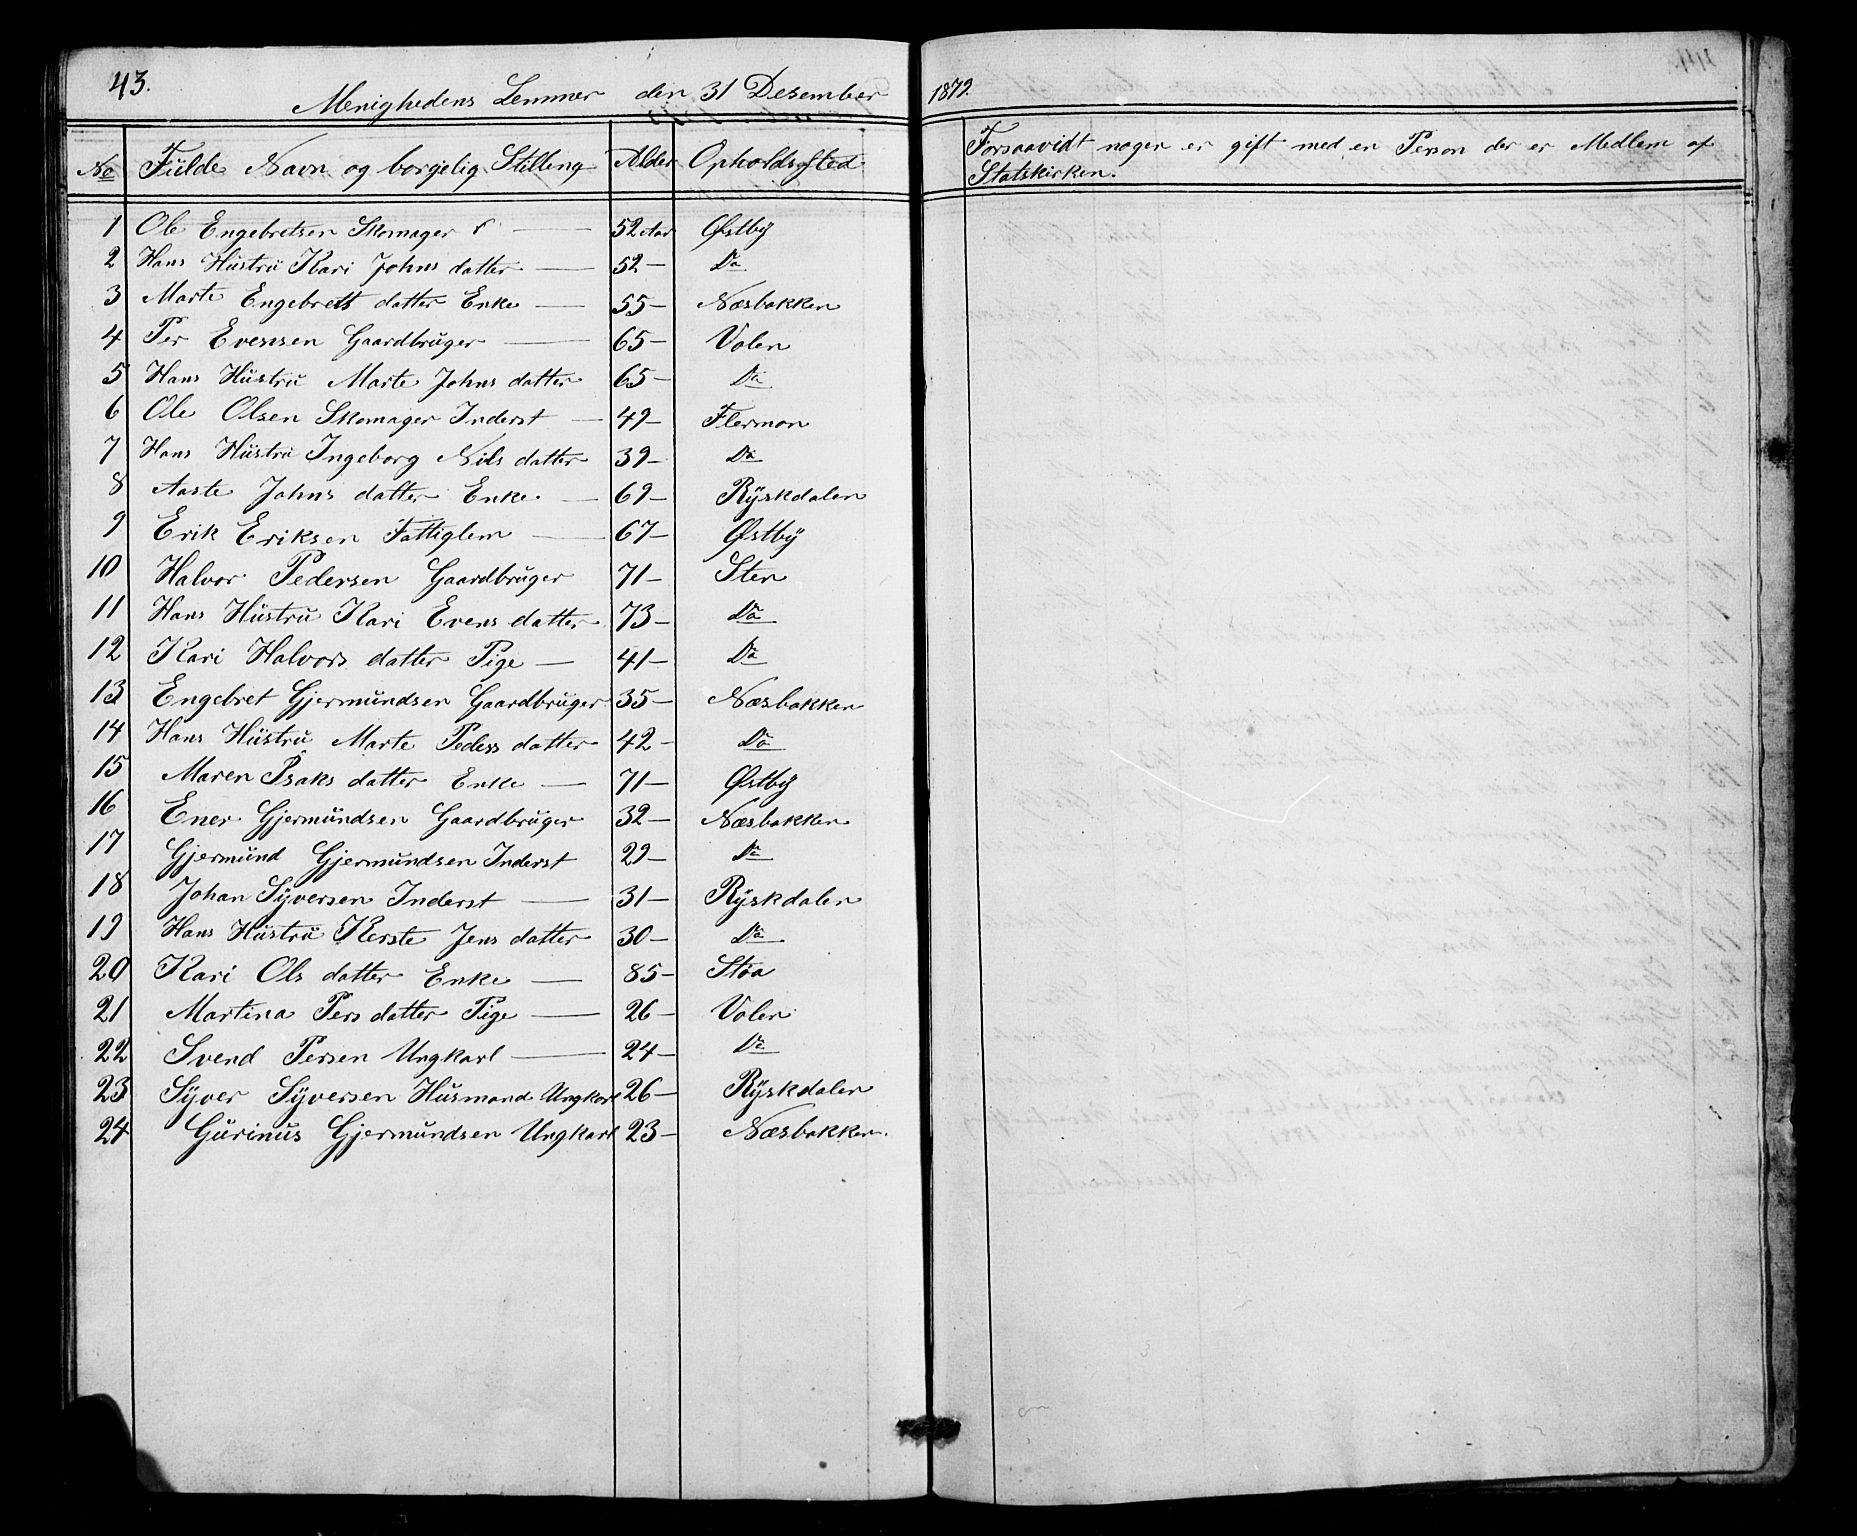 43.
Menighedens Lemmer den 31 Desember 1879.
No Fülde Navn og borgelig Stilleng Alder Opholdssted Forsaavidt nogen er gift med en Person der er Medlem af
Statskirken.
1 Ole Engebretsen Skomager 52 Aar Østby
2 Hans Hüstrü Kari Johns datter — 52 — Do
3 Marte Engebrets datter Enke — 55 — Næsbakken
4 Per Evensen Gaardbrüger — 65 — Volen
5 Hans Hüstrü Marte Johns datter 65 — Do
6 Ole Olsen Skomager Inderst — 49 — Flermon
7 Hans Hüstrü Ingeborg Nils datter 39 — Do
8 Aaste Johns datter Enke — 69 — Rÿskdalen
9 Erik Eriksen Fattiglem — 67 — Østbÿ
10 Halvor Pedersen Gaardbrüger 71 — Sten
11 Hans Hüstrü Kari Evens datter 73 — Do
12 Kari Halvors datter Pige — 41 — Do
13 Engebret Gjermündsen Gaardbruger 35 — Næsbakken
14 Hans Hüstrü Marte Peders datter 42 — Do
15 Maren Isaks datter Enke — 71 — Østbÿ
16 Ener Gjermündsen Gaardbrüger 32 — Næsbakken
17 Gjermünd Gjermundsen Inderst 29 — Do
18 Johan Sÿversen Inderst — 31 — Rÿskdalen
19 Hans Hüstrü Kerste Jens datter 30 — Do
20 Kari Ols datter Enke — 85 — Støa
21 Martina Pers datter Pige — 26 — Volen
22 Svend Persen Ungkarl — 24 — Do
23 Sÿver Sÿversen Husmand Ungkarl 26 — Rÿskdalen
24 Gürinus Gjermündsen Ungkarl 23 — Næsbakken.